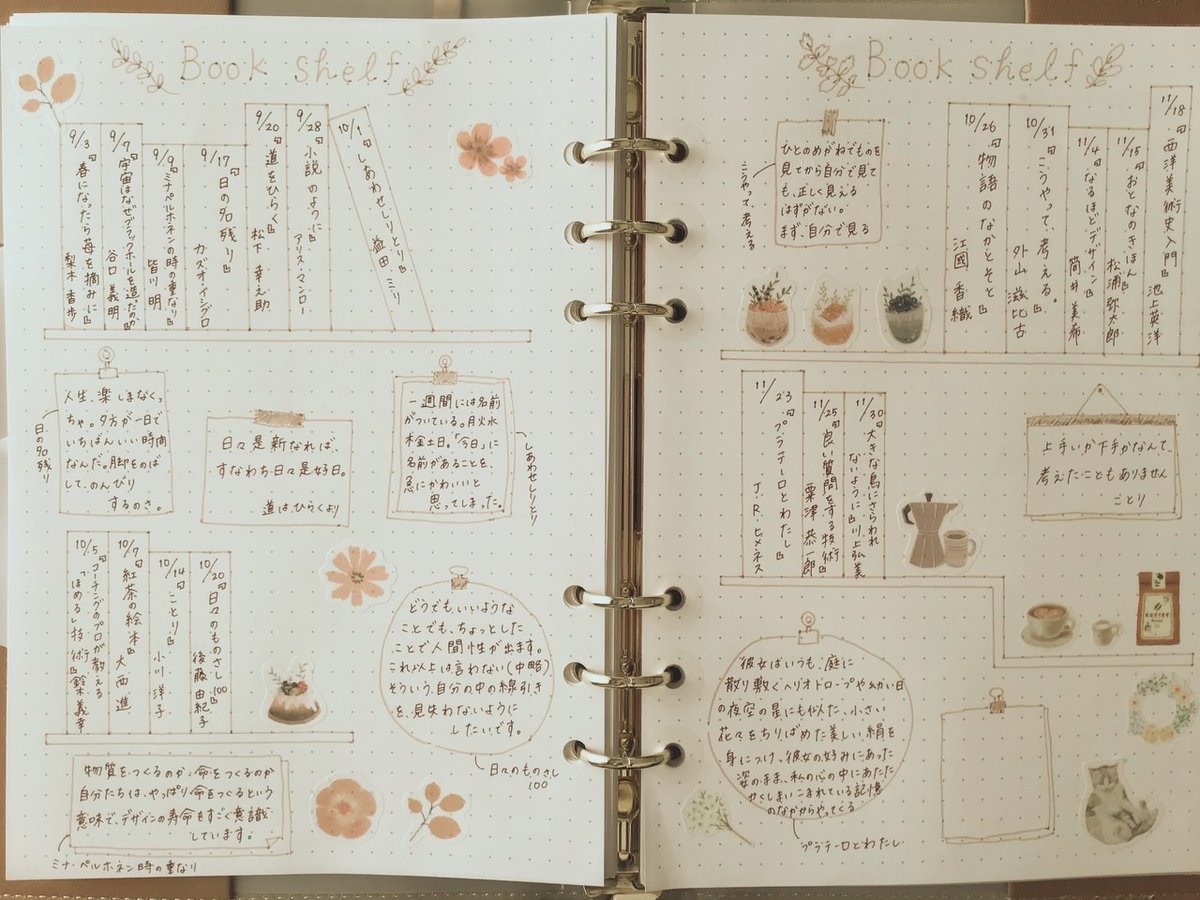 Book shelf
9/3 『春になったら苺を摘みに』 梨木香歩
9/7 『宇宙はなぜブラックホールを造ったのか』 谷口義明
9/9 『ミナペルホネンの時の重なり』 皆川明
9/17 『日の名残り』 カズオ・イシグロ
9/20 『道をひらく』 松下幸之助
9/28 『小説のように』 アリス・マンロー
10/1 『しあわせしりとり』 益田ミリ
人生、楽しまなくっ
ちゃ。夕方が一日で
いちばんいい時間
なんだ。脚をのば
して、のんびり
するのさ。
日の名残り
日々是新なれば、
すなわち日々是好日。
道はひらくより
一週間には名前
がついている。月火水
木金土日。「今日」に
名前があることを、
急にかわいいと
思ってしまった。
しあわせしりとり
10/5 『コーチングのプロが教える
「ほめる」技術』 鈴木義幸
10/7 『紅茶の絵本』 大西進
10/14 『ことり』 小川洋子
10/20 『日々のものさし100』 後藤由紀子
どうでもいいような
ことでも、ちょっとした
ことで人間性が出ます。
これ以上は言わない(中略)
そういう、自分の中の線引き
を、見失わないように
したいです。
日々のものさし
100
物質をつくるのか、命をつくるのか
自分たちは、やっぱり命をつくるという
意味で、デザインの寿命をすごく意識
しています。
ミナ・ペルホネン時の重なり
Book shelf
ひとのめがねでものを
見てから自分で見て
も、正しく見える
はずがない。
まず、自分で見る
こうやって、考える
10/26 『物語のなかとそと』 江國香織
10/31 『こうやって、考える。』 外山滋比古
11/4 『なるほどデザイン』 筒井美希
11/15 『おとなのきほん』 松浦弥太郎
11/18 『西洋美術史入門』 池上英洋
11/23 『プラテーロとわたし』 J・R・ヒメネス
11/25 『良い質問をする技術』 粟津恭一郎
11/30 『大きな鳥にさらわれ
ないように』 川上弘美
上手いか下手かなんて、
考えたこともありません
ことり
COFFEE
彼女はいつも、庭に
散り敷くヘリオトロープや幼い日
の夜空の星にも似た、小さい
花々をちりばめた美しい絹を
身につけ、彼女の好みにあった
姿のまま、私の心の中にあたた
かくしまいこまれている記憶
のなかからやってくる
プラテーロとわたし